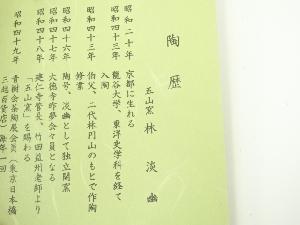 陶歴
五山窯 林 淡幽
昭和二十年 京都に生れる
昭和四十三年 龍谷大学、東洋史学科を経て
入陶
昭和四十三年 伯父、二代林円山のもとで作陶
修業
昭和四十六年 陶号、淡幽として独立開窯
昭和四十七年 大徳寺昨夢会々員となる
昭和四十八年 建仁寺管長、竹田益州老師より
「五山窯」を賜わる
昭和四十九年 青樹会茶陶展会員（東京日本橋
三越百貨店）毎年一回